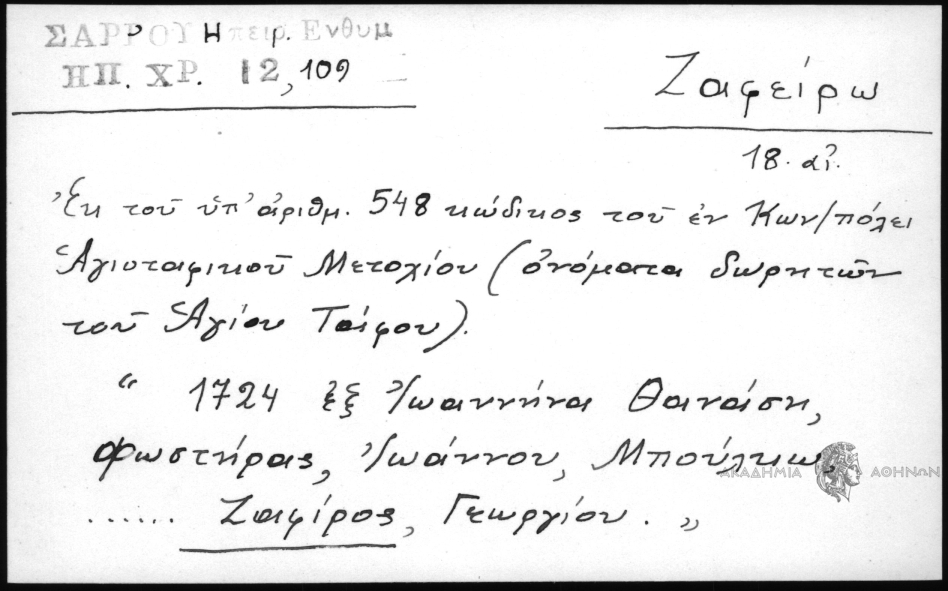 ΣΑΡΡΟΥ Ηπειρ. Ενθυμ
ΗΠ. ΧΡ. 12, 109
Ζαφείρω
18. αἰ.
Ἐκ τοῦ ὑπ' ἀριθμ. 548 κώδικος τοῦ ἐν Κων/πόλει
Ἁγιοταφικοῦ Μετοχίου (ὀνόματα δωρητῶν
τοῦ Ἁγίου Τάφου).
“ 1724 ἐξ Ἰωαννήνα Θανάση,
Φωστήρας, Ἰωάννου, Μπούλκω,
...... Ζαφίρος, Γεωργίου. „
ΑΚΑΔΗΜΙΑ ΑΘΗΝΩΝ